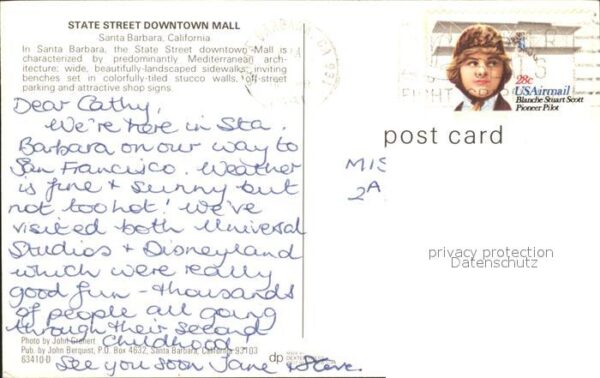 STATE STREET DOWNTOWN MALL
Santa Barbara, California
In Santa Barbara, the State Street downtown Mall is
characterized by predominantly Mediterranean archi-
tecture; wide, beautifully-landscaped sidewalks; inviting
benches set in colorfully-tiled stucco walls, off-street
parking and attractive shop signs
Dear Cathy,
We're here in Sta.
Barbara on our way to
San Francisco. Weather
is fine + sunny but
not too hot! We've
visited both Universal
Studios + Disneyland
which were really
good fun - thousands
of people all going
through their second
Childhood!
See you soon Jane + Steve.
Photo by John
Pub. by John Berquist, P.O. Box 4632, Santa Barbara, California 93103
63410-D
dp
28c
USAirmail
Blanche Stuart Scott
Pioneer Pilot
post card
MIS
2A
privacy protection
Datenschutz